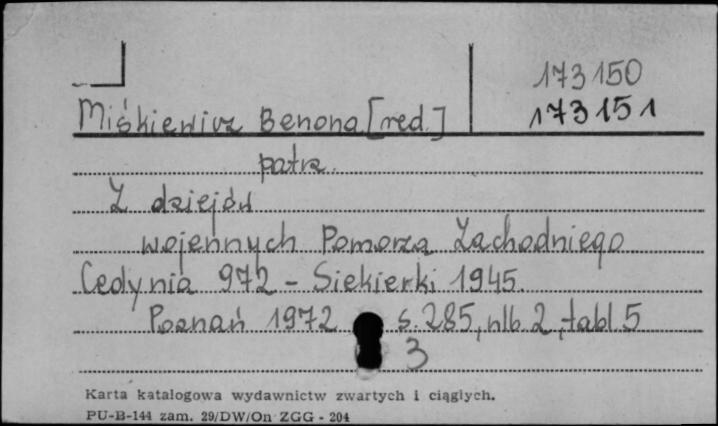 173150
173151
Miśkiewicz Benona [red.]
patrz.
Z dziejów
wojennych Pomorza Zachodniego
Cedynia 972 - Siekierki 1945.
Poznań 1972 s. 285, nlb. 2, tabl 5
3
Karta katalogowa wydawnictw zwartych i ciągłych.
PU-B-144 zam. 29/DW/On ZGG - 204